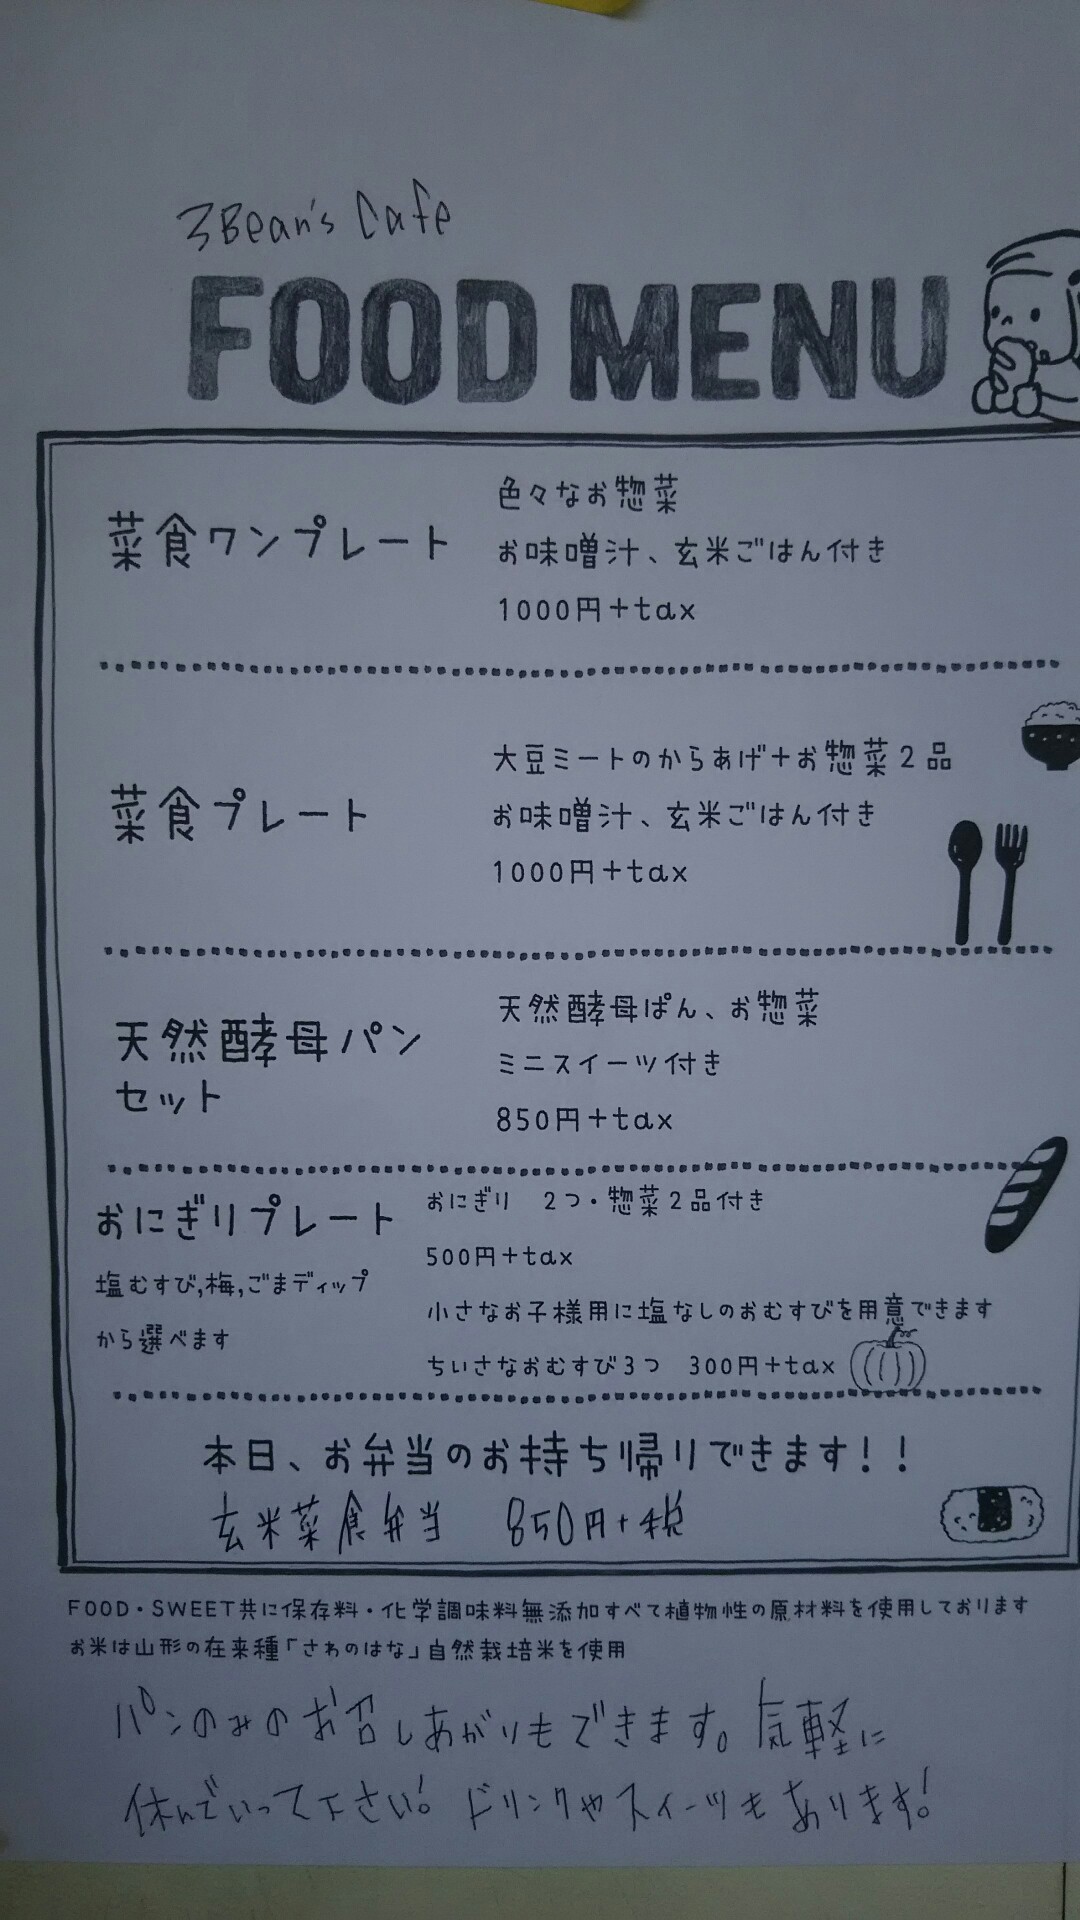 3Bean's Cafe
FOOD MENU
菜食ワンプレート
色々なお惣菜
お味噌汁、玄米ごはん付き
1000円+tax
菜食プレート
大豆ミートのからあげ+お惣菜2品
お味噌汁、玄米ごはん付き
1000円+tax
天然酵母パン
セット
天然酵母ぱん、お惣菜
ミニスイーツ付き
850円+tax
おにぎりプレート
塩むすび,梅,ごまディップ
から選べます
おにぎり 2つ・惣菜2品付き
500円+tax
小さなお子様用に塩なしのおむすびを用意できます
ちいさなおむすび3つ 300円+tax
本日、お弁当のお持ち帰りできます!!
玄米菜食弁当 850円+税
FOOD・SWEET共に保存料・化学調味料無添加すべて植物性の原材料を使用しております
お米は山形の在来種「さわのはな」自然栽培米を使用
パンのみのお召しあがりもできます。気軽に
休んでいって下さい!ドリンクやスイーツもあります!